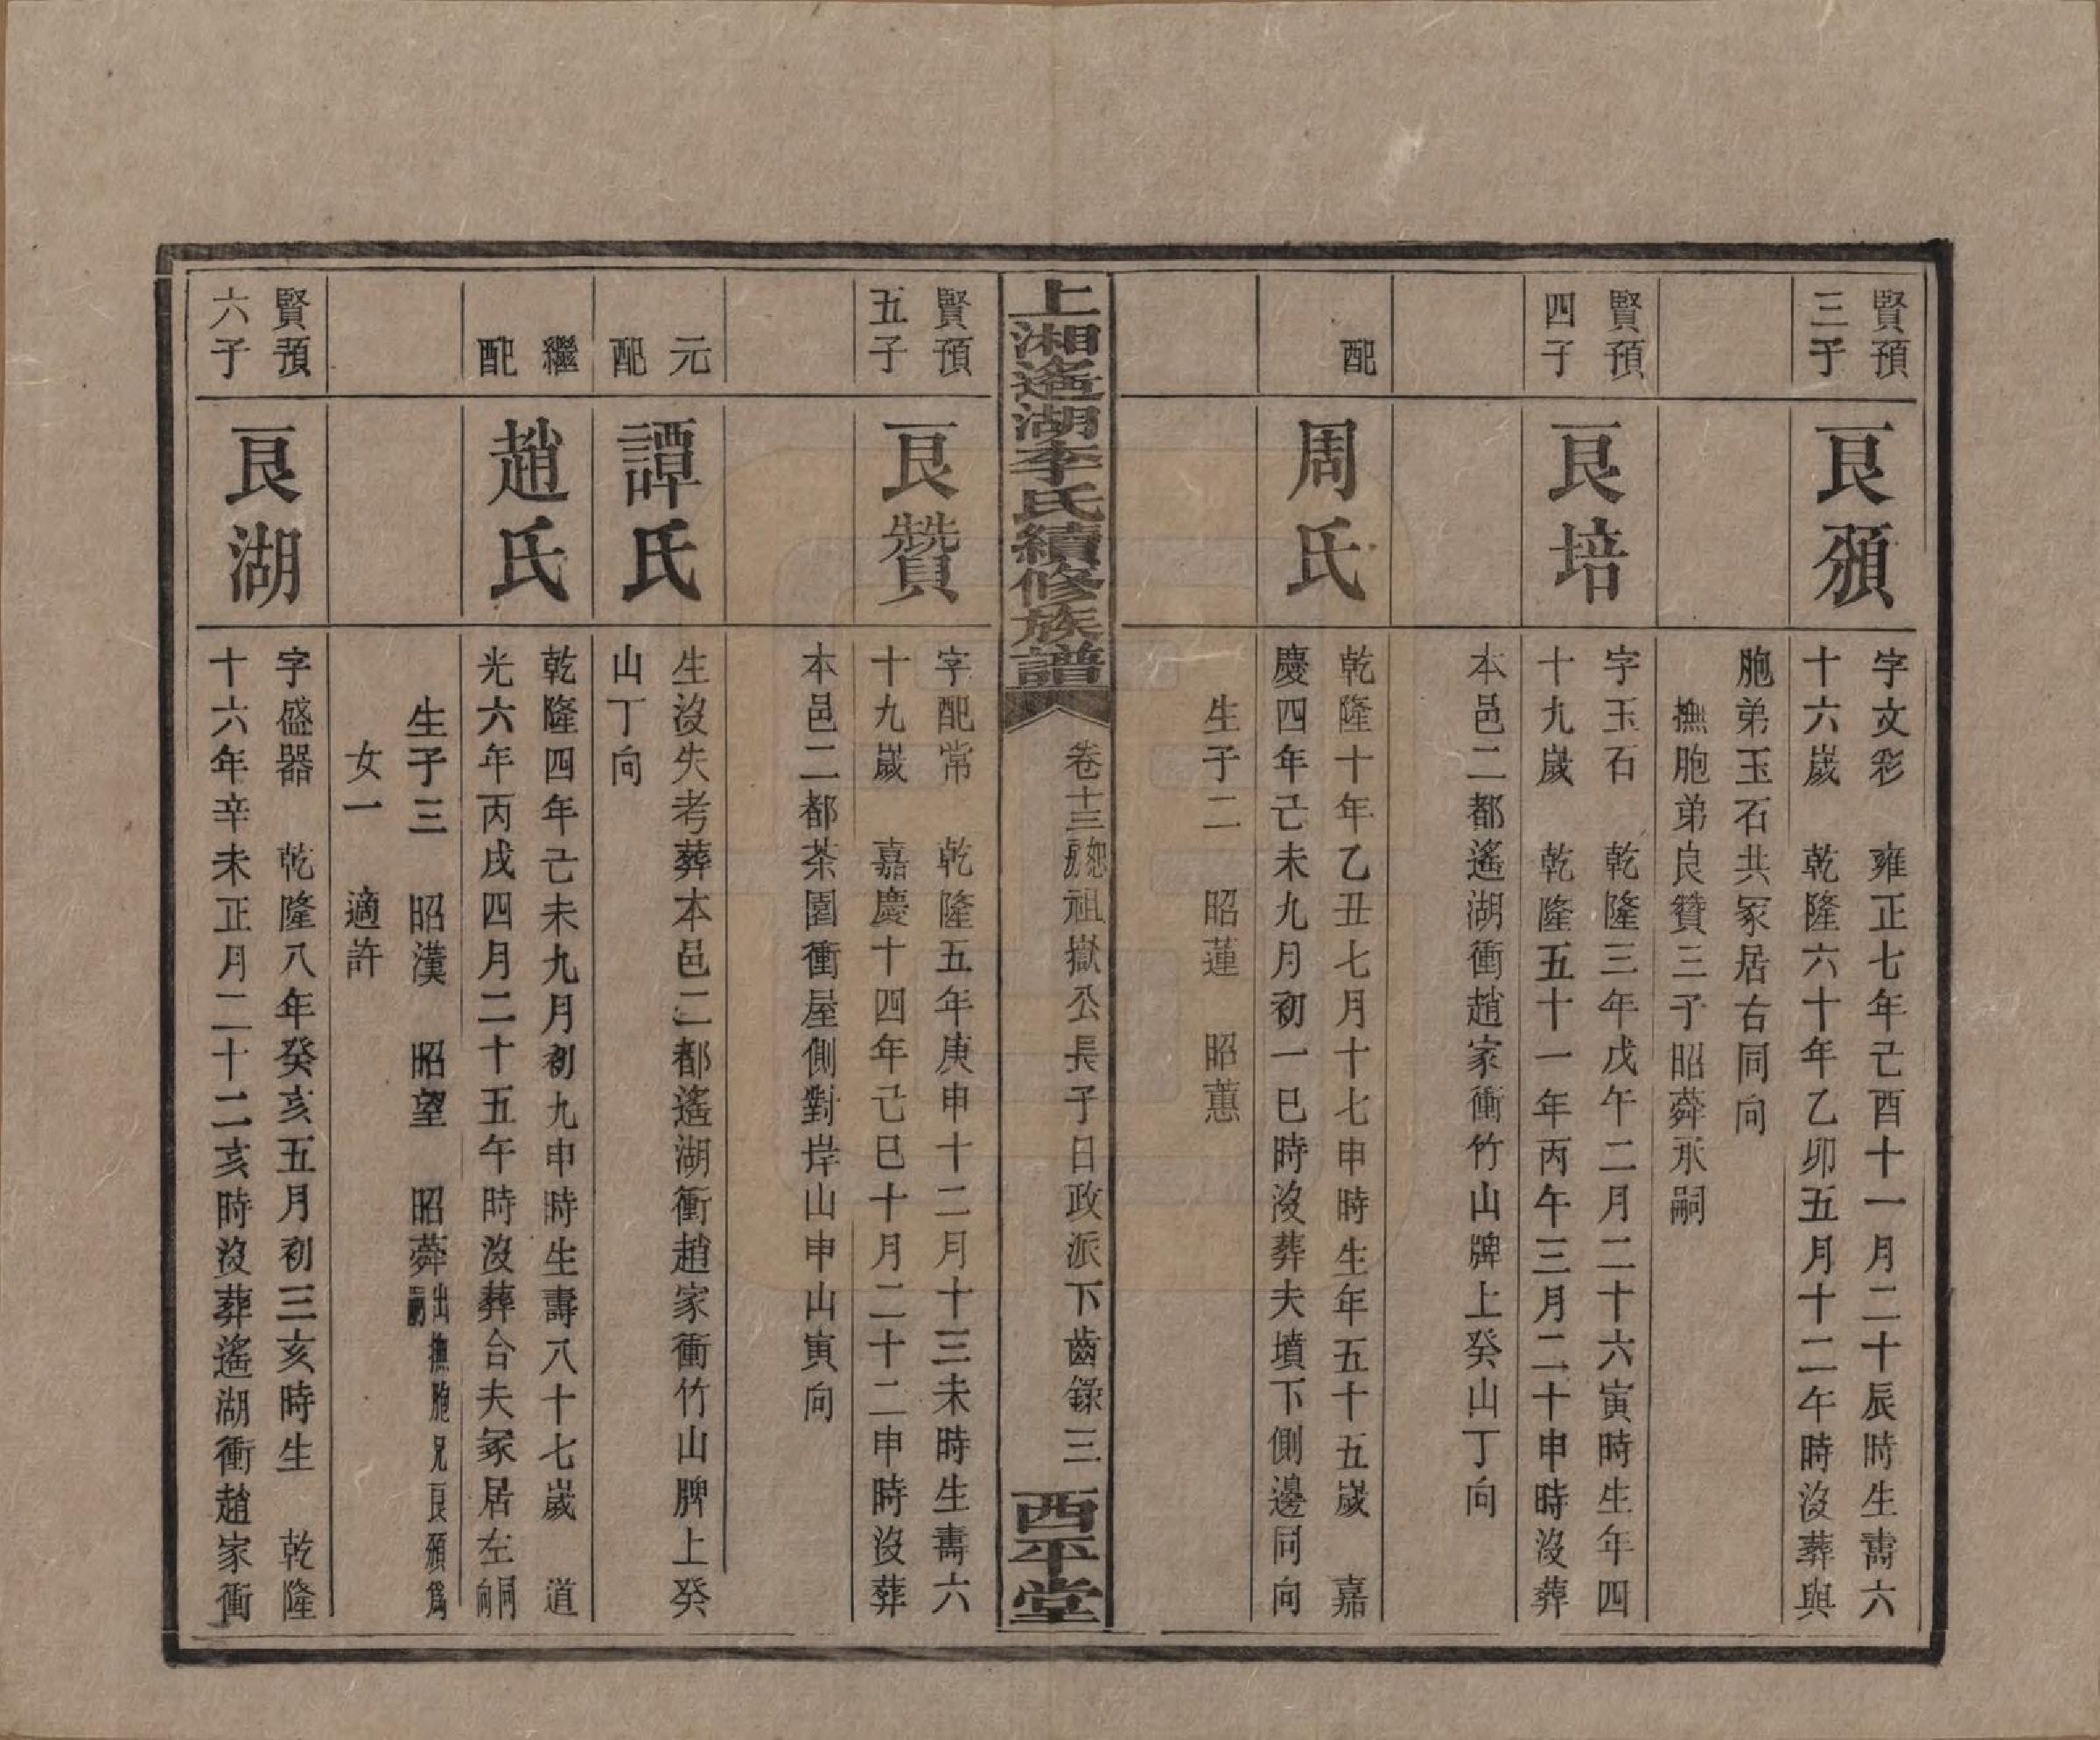 賢預
三子
良頒
字文彩　雍正七年己酉十一月二十辰時生壽六
十六歲　乾隆六十年乙卯五月十二午時沒葬與
胞弟玉石共冢居右同向
撫胞弟良贊三子昭薢承嗣
賢預
四子
良培
字玉石　乾隆三年戊午二月二十六寅時生年四
十九歲　乾隆五十一年丙午三月二十申時沒葬
本邑二都遙湖衝趙家衝竹山牌上癸山丁向
配
周氏
乾隆十年乙丑七月十七申時生年五十五歲　嘉
慶四年己未九月初一巳時沒葬夫墳下側邊同向
生子二　昭蓮　昭蕙
上湘遙湖李氏續修族譜
卷十三恕房祖嶽公長子日政派下齒錄三
西平堂
賢預
五子
良贊
字配常　乾隆五年庚申十二月十三未時生壽六
十九歲　嘉慶十四年己巳十月二十二申時沒葬
本邑二都茶園衝屋側對岸山申山寅向
元
配
譚氏
生沒失考葬本邑二都遙湖衝趙家衝竹山脾上癸
山丁向
繼
配
趙氏
乾隆四年己未九月初九申時生壽八十七歲　道
光六年丙戌四月二十五午時沒葬合夫冢居左同向
生子三　昭漢　昭望　昭薢出撫胞兄良頒爲嗣
女一　適許
賢預
六子
良湖
字盛器　乾隆八年癸亥五月初三亥時生　乾隆
十六年辛未正月二十二亥時沒葬遙湖衝趙家衝